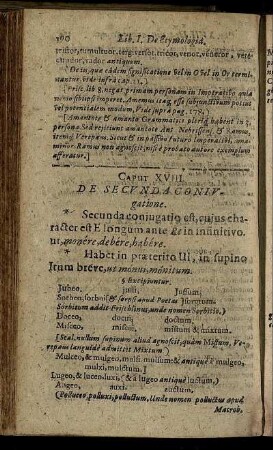 100 Lib. I. De Etymologia.
tristor, tumultuor, tergiversor, tricor, venor, veneror, vere-
cundor, vador antiquum.
De in, quæ eâdem significatione vel in O vel in Or termi-
nantur. vide infrà cap.
Prisc. lib 8. negat primam personam in Imperativo quia
nemo sibi ipsi imperet. Amem, si aq, esse subjunctivum potius
vel potentialem modum, Vide suprà pag. 178.
(Amaminor & amantor Grammatici plerique habent in 3.
persona Sed rejiciunt amaminor Ant. Nebrissens. & Ramus,
itemq́ Verepæus. Sicut & in passivo futuro Imperativi, ama-
minor. Ramus non agnoscit, nisi è probato autore exemplum
afferatur.)
CAPUT XVIII.
DE SECUNDA CONIU-
gatione.
* Secunda coniugatio est, cujus cha-
racter est E longum ante Re in infinitivo.
ut, monêre, debêre, habêre.
* Habet in præterito UI, in supino
Itum breve, ut monui, monitum.
§ Excipiuntur.
Jubeo, jussi, jussum,
Sorbeo, sorbui (& sorpsi apud Poetas) sorptum.
Sorbitum addit Frischlinus, unde nomen Sorbitio.)
Doceo, docui, doctum.
Misceo, miscui, mistum & mixtum.
(Scal. mistum supinum aliud agnoscit, quàm Mistum. Ve-
repæus languidè admittit Mixtum.)
Mulceo, & mulgeo, mulsi, mulsum & antiquè à mulgeo,
mulxi, mulctum.]
Lugeo, & luceo, luxi, [& à lugeo antiquè luctum,]
Augeo, auxi, auctum,
(Polluceo, polluxi, polluctum, Unde nomen polluctus apud
Macrob.